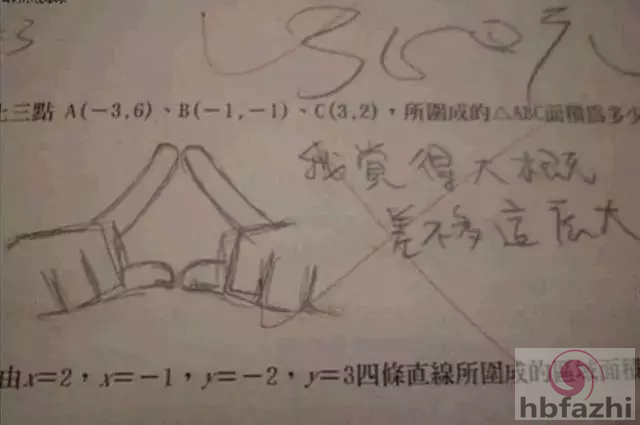 上三點 A(-3,6)、B(-1,-1)、C(3,2)，所圍成的△ABC面積為多少
我覺得大概
差不多這麼大
由x=2，x=-1，y=-2，y=3四條直線所圍成的區域面積
hbfazhi